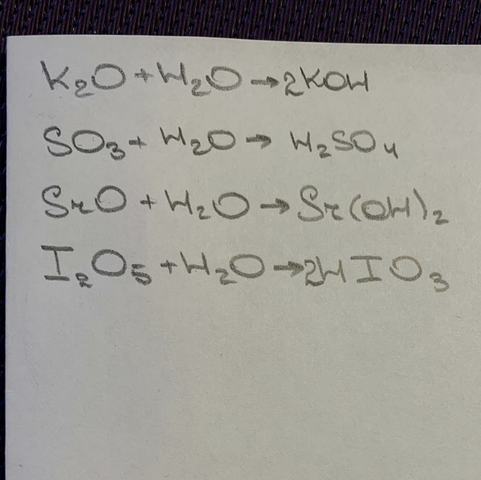 K₂O + H₂O → 2KOH
SO₃ + H₂O → H₂SO₄
SrO + H₂O → Sr(OH)₂
I₂O₅ + H₂O → 2HIO₃